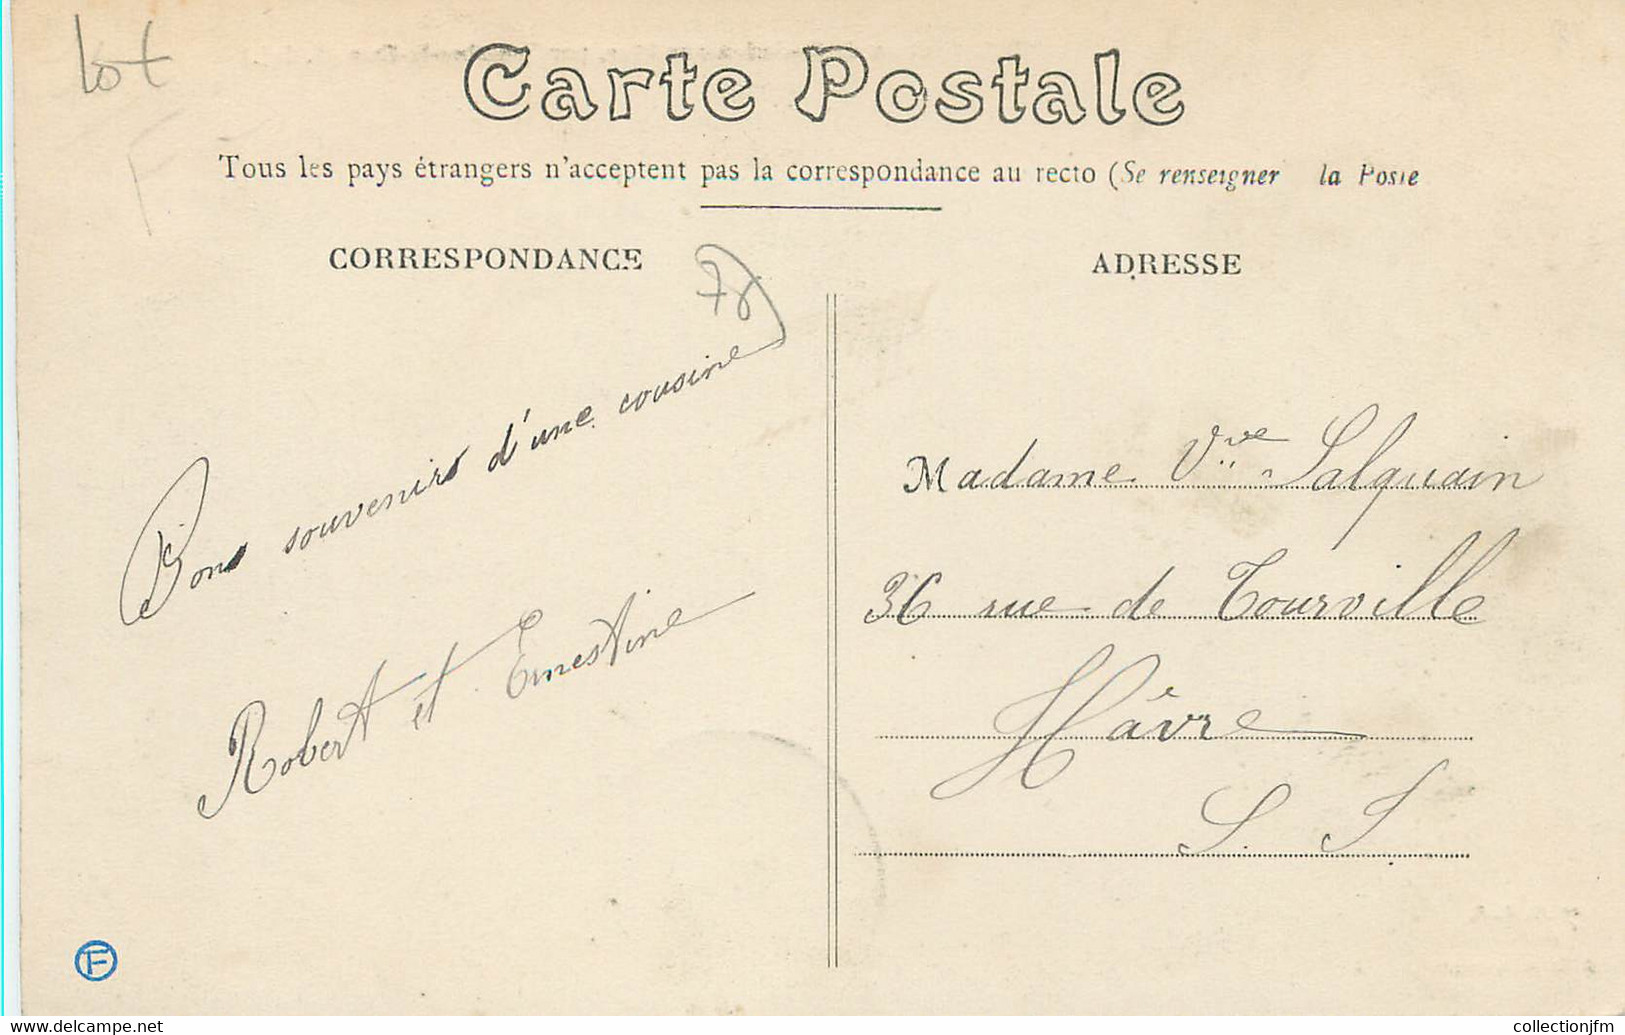 lot
F
Carte Postale
Tous les pays étrangers n'acceptent pas la correspondance au recto (Se renseigner la Poste
CORRESPONDANCE
78
Bons souvenirs d'une cousine
Robert et Ernestine
F
ADRESSE
Madame Vve Salquain
36 rue de Tourville
Hâvre
S. I.
www.delcampe.net
collectionjfm